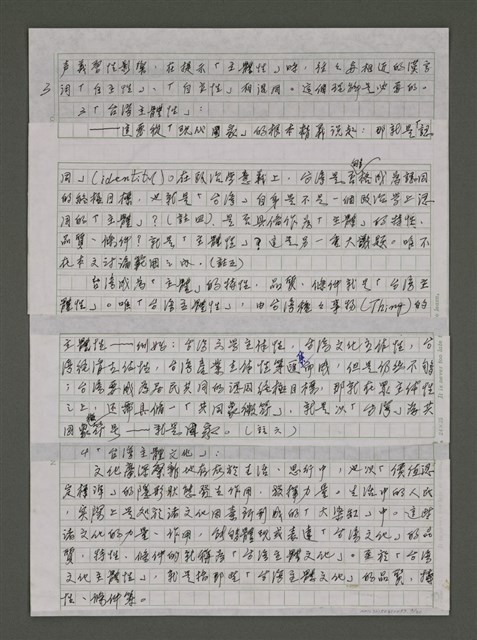 聲義習性影響,在提示「主體性」時,往之與相近的漢字
3 詞「自主性」、「自主性」相混用。這個理解是必要的。
之「台灣主體性」:
——這要從「現代國家」的根本精義說起:那就是「認
同」(identity)。在政治學意義上,台灣是否構成為認同
的終極目標,也就是「台灣」自身是不是一個政治學上認
同的「主體」?(註四)是否具備作為「主體」的特性、
品質、條件?就是「主體性」?這是另一重大議題。唯不
在本文討論範圍之內。(註五)
台灣成為「主體」的特性,品質、條件就是「台灣主
體性」。唯「台灣主體性」,由台灣種之事物(Thing)的
主體性——例如:台灣文學主体性,台灣文化主体性,台
灣經濟主体性,台灣產業主体性等匯集而成,但是仍然不夠
;台灣要成為居民共同的認同終極目標,那就在眾主体性
之上,還需具備一「共同象徵符」,就是以「台灣」為共
同象徵符號——就是國家。(註六)
4「台灣主體文化」:
文化靈深刻地存在於生活、思行中,也以「價值認
定標準」的隱形狀態發生作用、發揮力量。生活中的人民,
實際上是起於諸文化因素所形成的「大染缸」中。這些
諸文化的力量、作用,能夠體現或表達「台灣文化」的品
質、特性、條件的就稱為「台灣主體文化」。至於「台灣
文化主體性」,就是指那些「台灣主體文化」的品質,特
性、條件等。